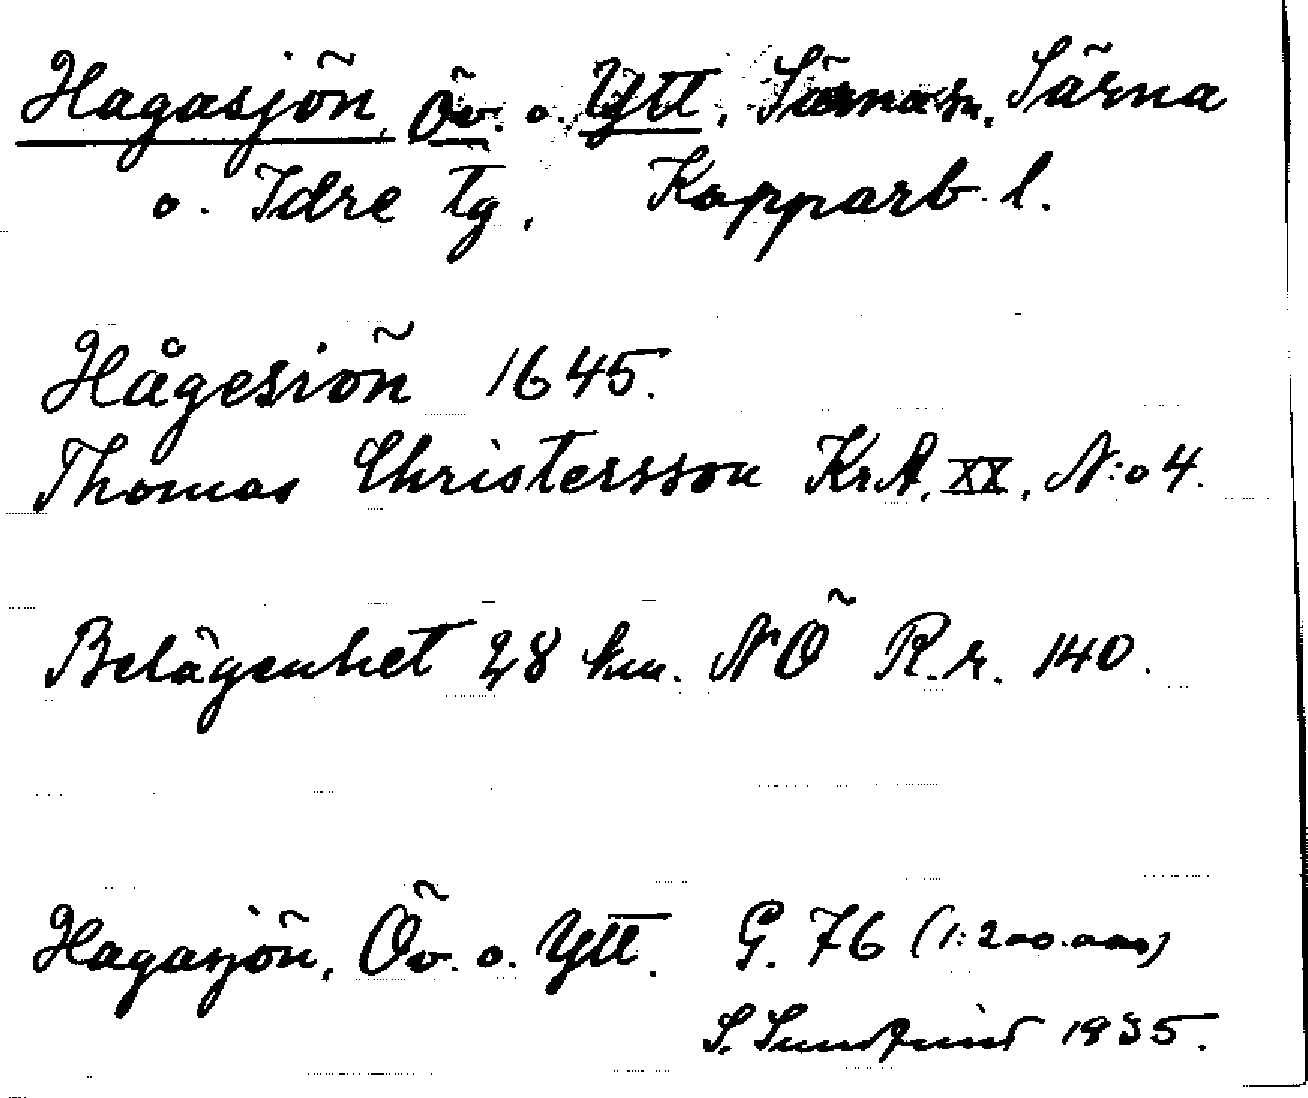 Hagasjön, Öv. o. Ytt, Särna sn, Särna
o. Idre tg, Kopparb. l.
Hågesiön 1645.
Thomas Christersson KrA, XX, N:o 4.
Belägenhet 28 km. NÖ R.r. 140.
Hagasjön, Öv. o. Ytt. G. 76 (1:200.000)
S. 1935.